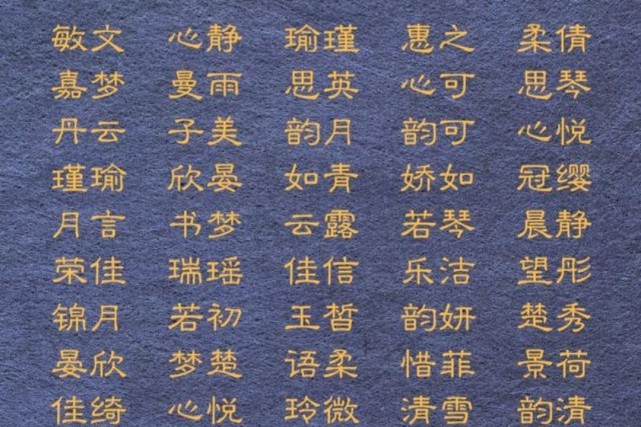 敏文 心静 瑜瑾 惠之 柔倩
嘉梦 曼雨 思英 心可 思琴
丹云 子美 韵月 韵可 心悦
瑾瑜 欣晏 如青 娇如 冠缨
月言 书梦 云露 若琴 晨静
荣佳 瑞瑶 佳信 乐洁 望彤
锦月 若初 玉皙 韵妍 楚秀
晏欣 梦楚 语柔 惜菲 景荷
佳绮 心悦 玲微 清雪 韵清